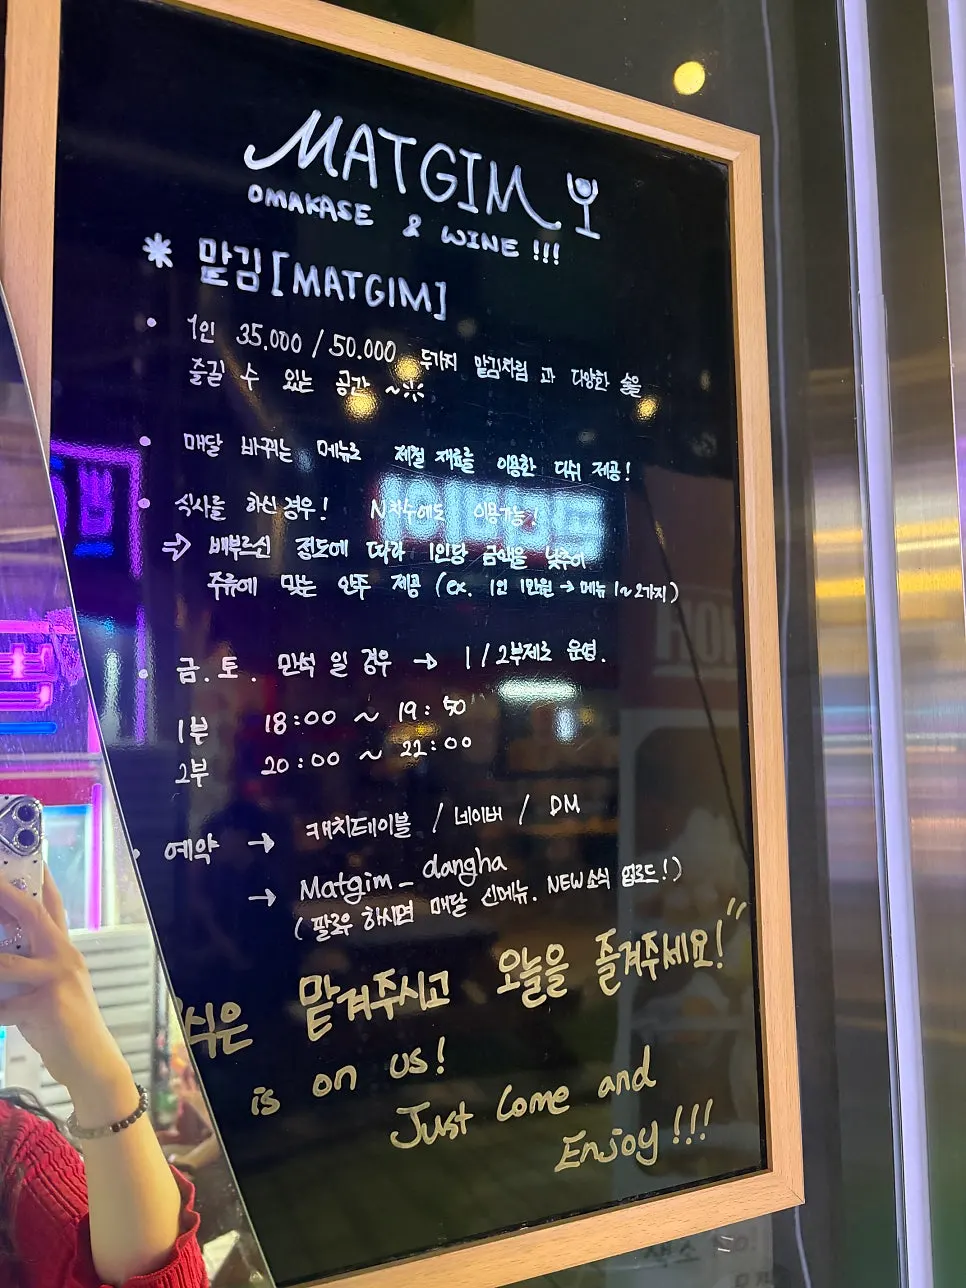 MATGIM
OMAKASE & WINE !!!
* 맡김 [MATGIM]
• 1인 35.000 / 50.000 두가지 맡김차림 과 다양한 술을
즐길 수 있는 공간 ~
• 매달 바뀌는 메뉴로 제철 재료를 이용한 디쉬 제공!
• 식사를 하신 경우! N차수에도 이용가능!
⇒ 배부르신 정도에 따라 1인당 금액을 낮추어
주류에 맞는 안주 제공 (ex. 1인 1만원 → 메뉴 1~2가지)
• 금.토. 만석 일 경우 → 1/2부제로 운영.
1부 18:00 ~ 19:50
2부 20:00 ~ 22:00
• 예약 → 캐치테이블 / 네이버 / DM
→ Matgim_dangha
(팔로우 하시면 매달 신메뉴. NEW소식 업로드!)
식은 맡겨주시고 오늘을 즐겨주세요!"
is on us!
Just Come and
Enjoy!!!